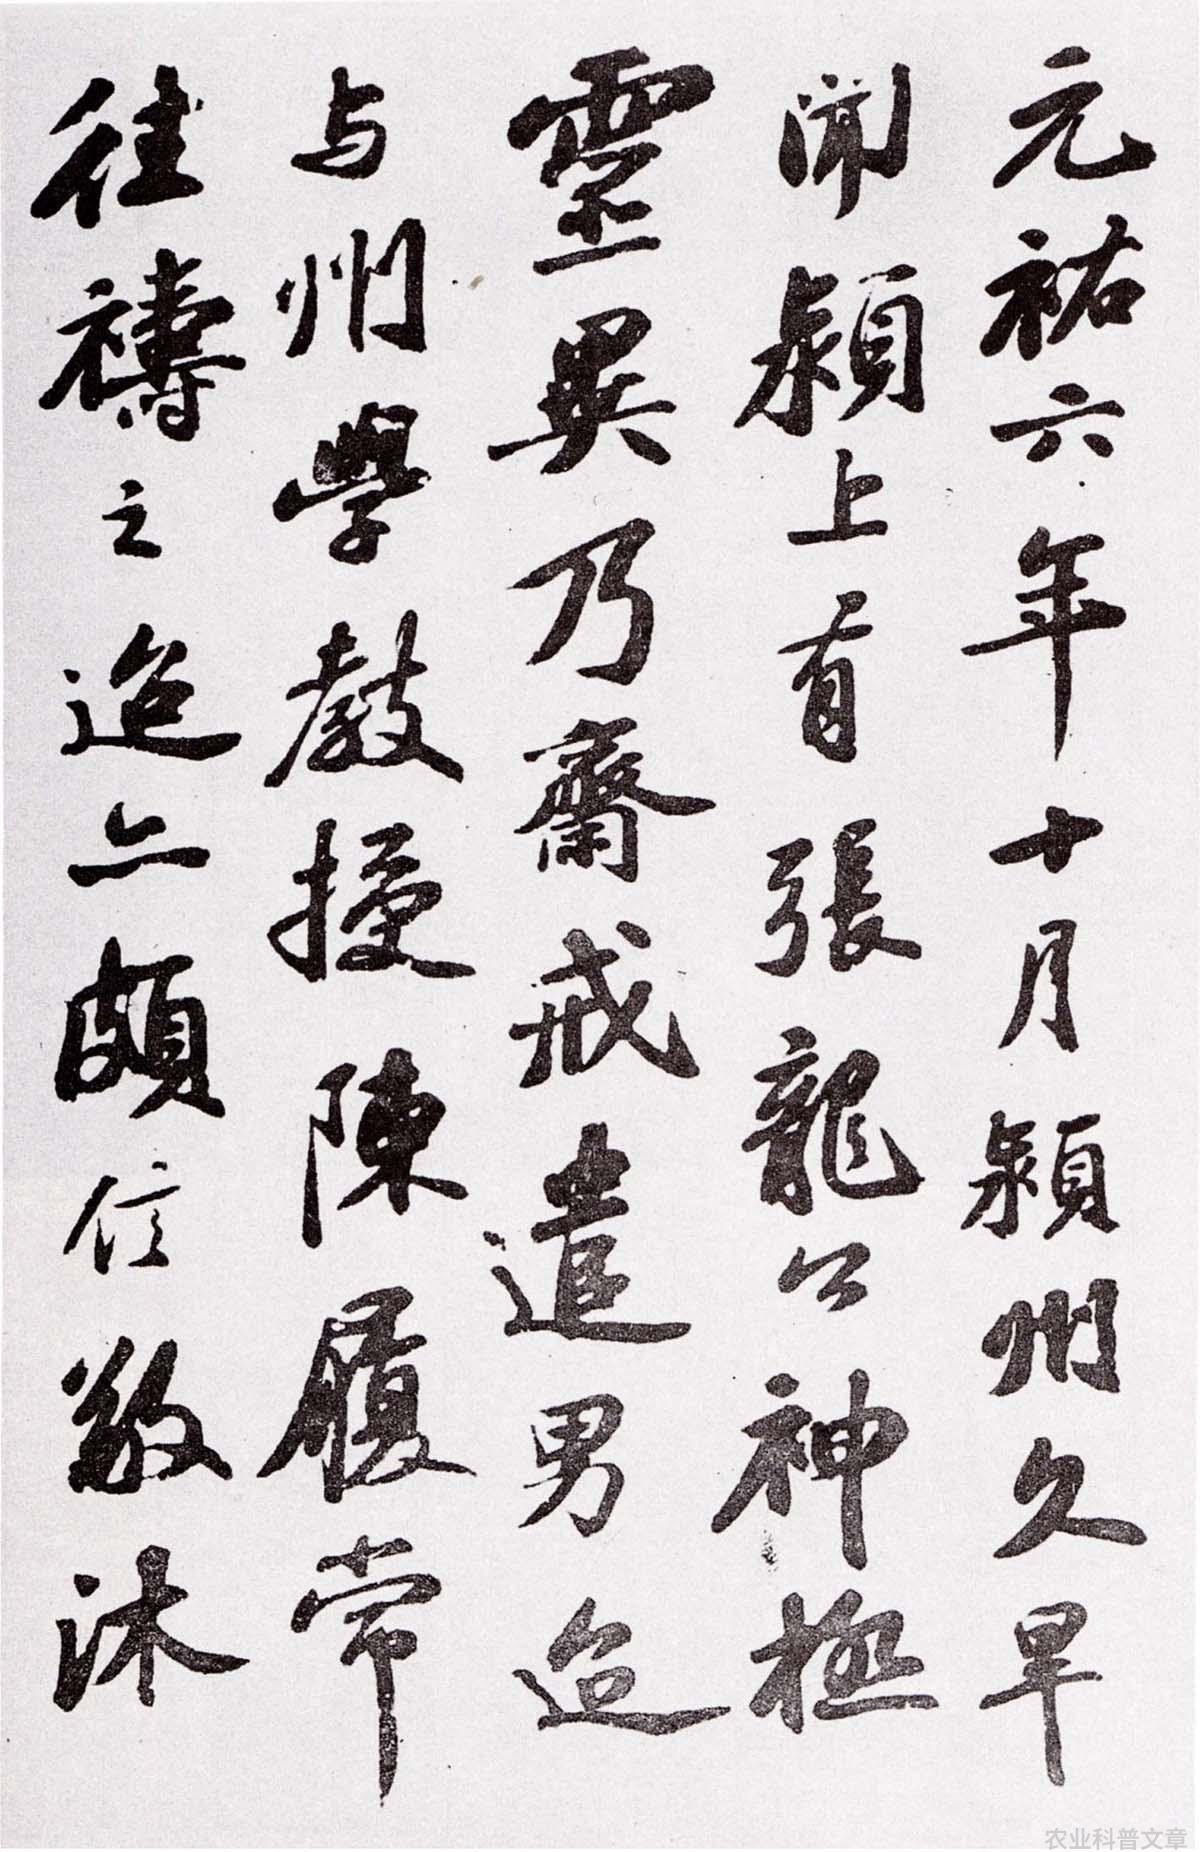 元祐六年十月潁州久旱
聞潁上有張龍公神極
靈異乃齋戒遣男迨
与州學教授陳履常
往禱之迨亦頗信敬沐
农业科普文章